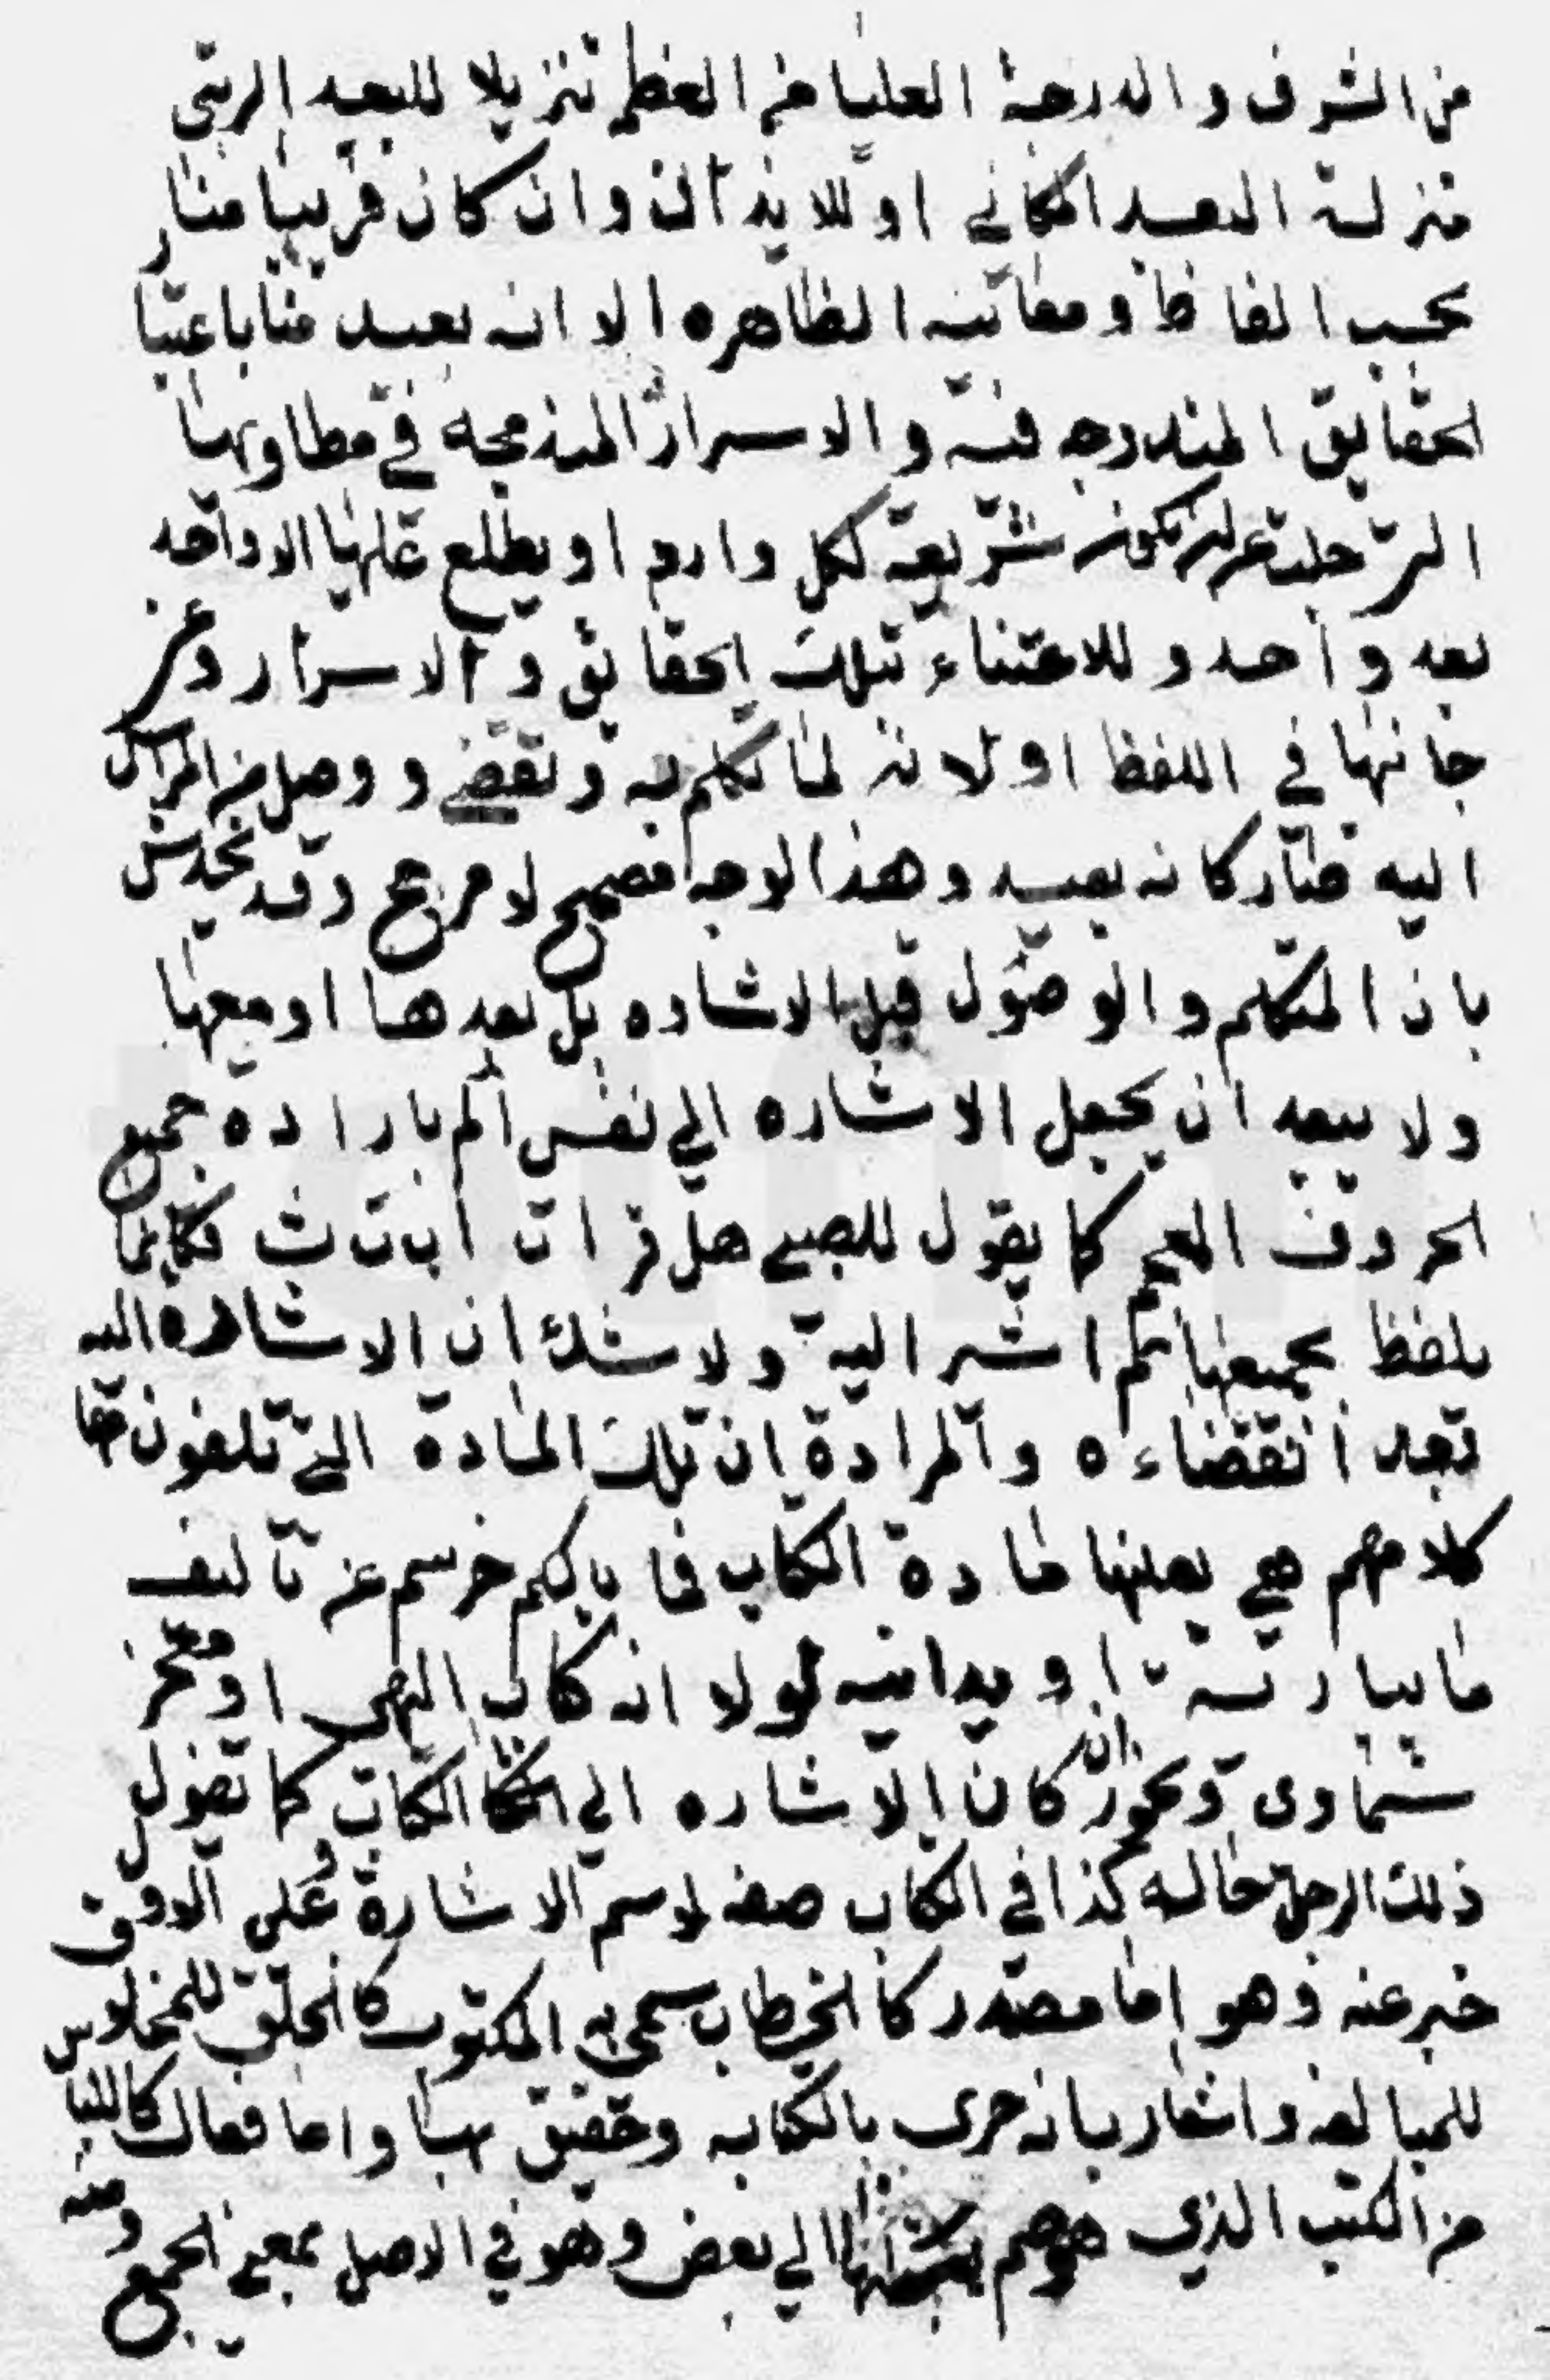 من الشرف والدرجة العليا من العظم تنزيلا للبعد الرتبي
منزلة البعد المكاني او للايذان وان كان قريبا منا
بحسب الفاظه ومعانيه الظاهره الا انه بعيد منا باعتبا
الحقايق المندرجه فيه والاسرار المندمجه في مطاويها
التي جلت عن ان تكون شريعة لكل وارد او يطلع عليها الا واحد
بعد واحد وللاعتناء بتلك الحقايق والاسرار وعز
جانبها في اللفظ او لانه لما تكلم به وتقضى ووصل من المرسل
اليه صار كانه بعيد وهذا الوجه مصحح لا مرجح وقد يخدش
بان المتكلم والوصول قبل الاشاره بل بعدها او معها
ولا يبعد ان يجعل الاشاره الى نفس الم بارادة جميع
الحروف المعجم كما يقول للصبي هل قرات ا ب ت ث فكانما
بلفظ بجميعها ثم اشير اليه ولا شك ان الاشاره اليه
بعد انقضاءه والمرادة ان تلك المادة التي تلفون منها
كلامهم هي بعينها مادة الكتاب فما بالكم خرستم عن تاليف
ما يباريه او يدانيه لولا انه كتاب الهي او معجز
سماوى ويجوز ان كان الاشاره الى الكتاب كما تقول
ذلك الرجل حاله كذا في الكتاب صفه لاسم الاشارة وعلى الاوفى
خبر عنه وهو اما مصدر كالخطاب سمى به المكتوب كالخلق للمخلوق
للمبالغه واشعار بانه حرى بالكتابه وحقيق بها واما فعال كاللبا
من الكتب الذي هو ضم الى بعض وهو في الاصل بمعنى الجمع ومنه